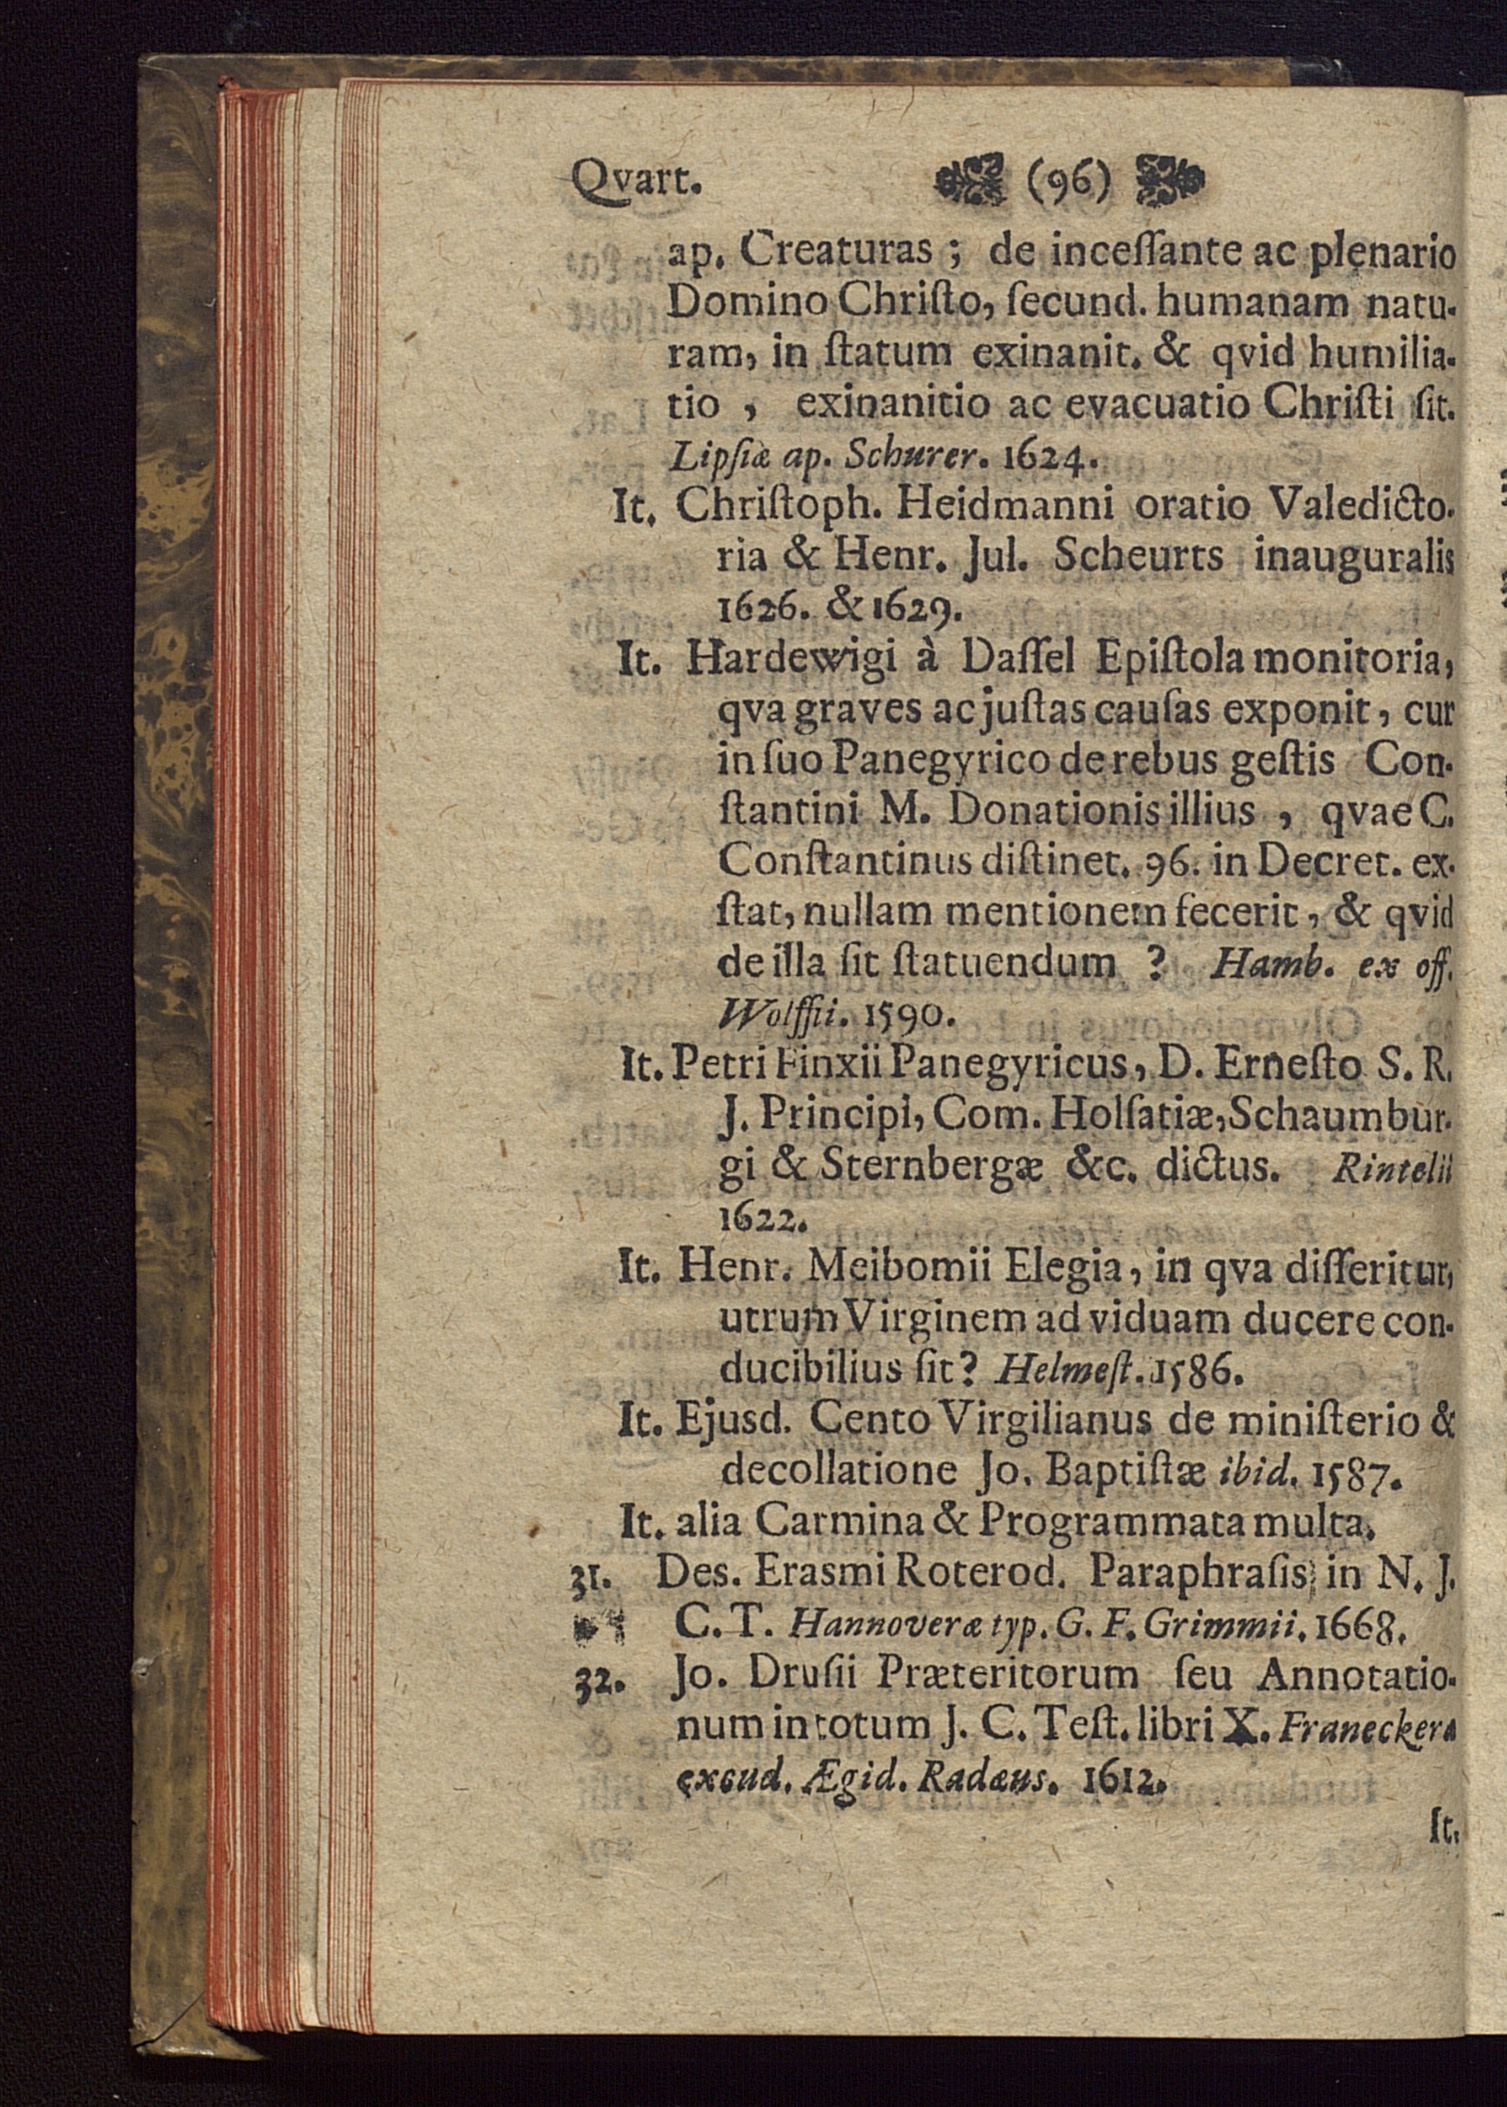 Qvart. (96)
ap. Creaturas ; de inceſſante ac plenario
Domino Chriſto, ſecund. humanam natu-
ram, in ſtatum exinanit. & qvid humilia-
tio , exinanitio ac evacuatio Chriſti ſit.
Lipſiæ ap. Schurer. 1624.
It. Chriſtoph. Heidmanni oratio Valedicto-
ria & Henr. Jul. Scheurts inauguralis
1626. & 1629.
It. Hardewigi à Daſſel Epiſtola monitoria,
qva graves ac juſtas cauſas exponit, cur
in ſuo Panegyrico de rebus geſtis Con-
ſtantini M. Donationis illius , qvae C.
Conſtantinus diſtinct. 96. in Decret. ex-
ſtat, nullam mentionem fecerit, & qvid
de illa ſit ſtatuendum ? Hamb. ex off.
Wolffii. 1590.
It. Petri Finxii Panegyricus, D. Erneſto S. R.
J. Principi, Com. Holſatiæ, Schaumbur-
gi & Sternbergæ &c. dictus. Rintelii
1622.
It. Henr. Meibomii Elegia, in qva diſſeritur,
utrum Virginem ad viduam ducere con-
ducibilius ſit? Helmeſt. 1586.
It. Ejusd. Cento Virgilianus de miniſterio &
decollatione Jo. Baptiſtæ ibid. 1587.
It. alia Carmina & Programmata multa.
31. Des. Erasmi Roterod. Paraphraſis in N. J.
C. T. Hannoveræ typ. G. F. Grimmii. 1668.
32. Jo. Druſii Præteritorum ſeu Annotatio-
num in totum J. C. Teſt. libri X. Franeckera
excud. Ægid. Radæus. 1612.
It.